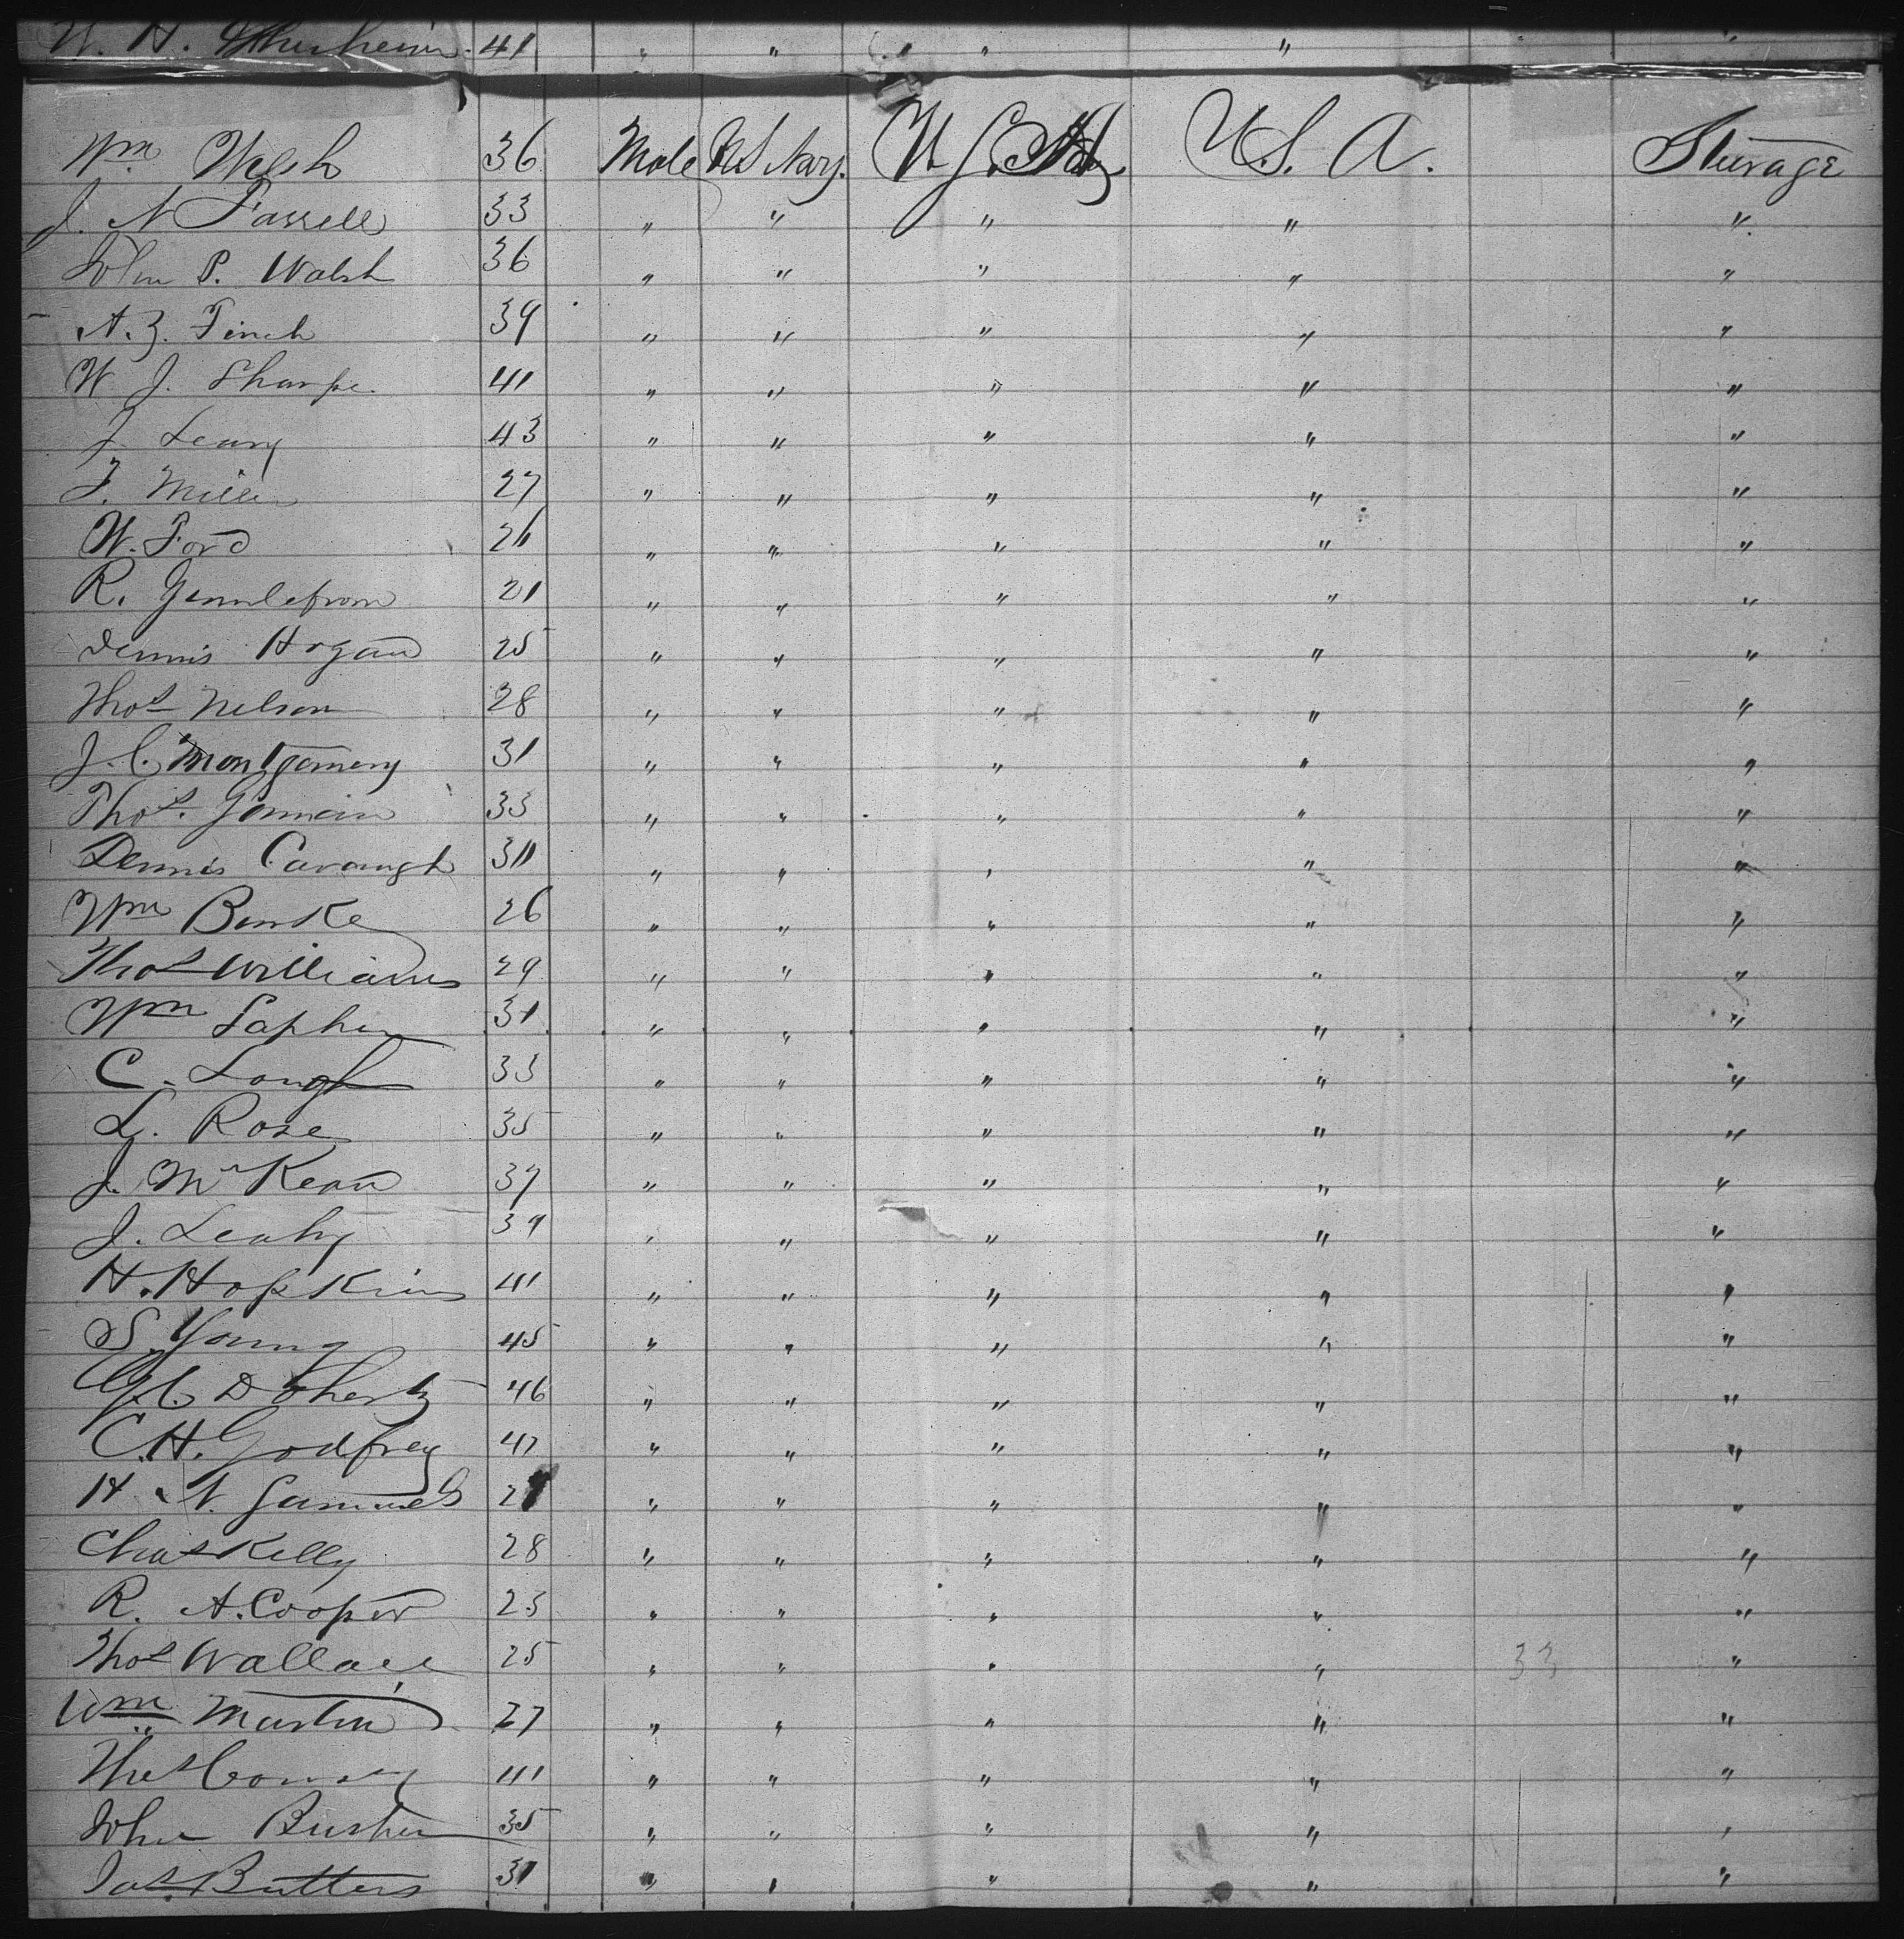 W. H. 41 " " " "
Wm Welsh 36 Male U S Navy. U. S. Navy U. S. A. Steerage
J. N Farrell 33 " " " " "
John P. Walsh 36 " " " " "
A. Z. Finch 39 " " " " "
W J. Sharpe. 41 " " " " "
J. Leary 43 " " " " "
F. Miller 27 " " " " "
W. Ford 26 " " " " "
R. 21 " " " " "
Dennis Hogan 25 " " " " "
Thos Nelson 28 " " " " "
J. C. Montgomery 31 " " " " "
Thos. 33 " " " " "
Dennis Cavaugh 30 " " " " "
Wm Burke 26 " " " " "
Thos Williams 29 " " " " "
Wm 31 " " " " "
C. 33 " " " " "
L. Rose 35 " " " " "
J. McKean 37 " " " " "
J. Leahy 39 " " " " "
H. Hopkins 41 " " " " "
S. Young 45 " " " " "
Doherty 46 " " " " "
C. H. Godfrey 47 " " " " "
H. N. Sammels " " " " "
Chas Kelly 28 " " " " "
R. A. Cooper 23 " " " " "
Thos Wallace 25 " " " " 33 "
Wm Martin 27 " " " " "
Thos 41 " " " " "
John Busher 35 " " " " "
Jas. Butters 31 " " " " "